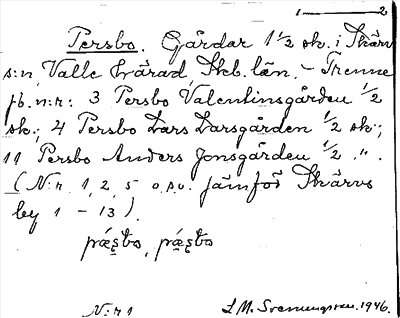 1 — 2
Persbo. Gårdar 1 1/2 sk. i Skärvs
s:n, Valle härad, Skb. län. - Trenne
jb. n:r: 3 Persbo Valentinsgården 1/2
sk.; 4 Persbo Lars Larsgården 1/2 sk.;
11 Persbo Anders Jonsgården 1/2 ,,.
(N:r 1, 2, 5 o.s.v. jämför Skärvs
by 1 - 13).
N:r 1 J. M. Svenungsson. 1946.